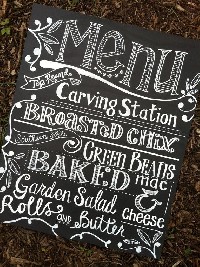 Menu
Top Round
Carving Station
BROASTED CHIX
Southern Style
GREEN BEANS
BAKED mac
& cheese
Garden Salad
Rolls and Butter